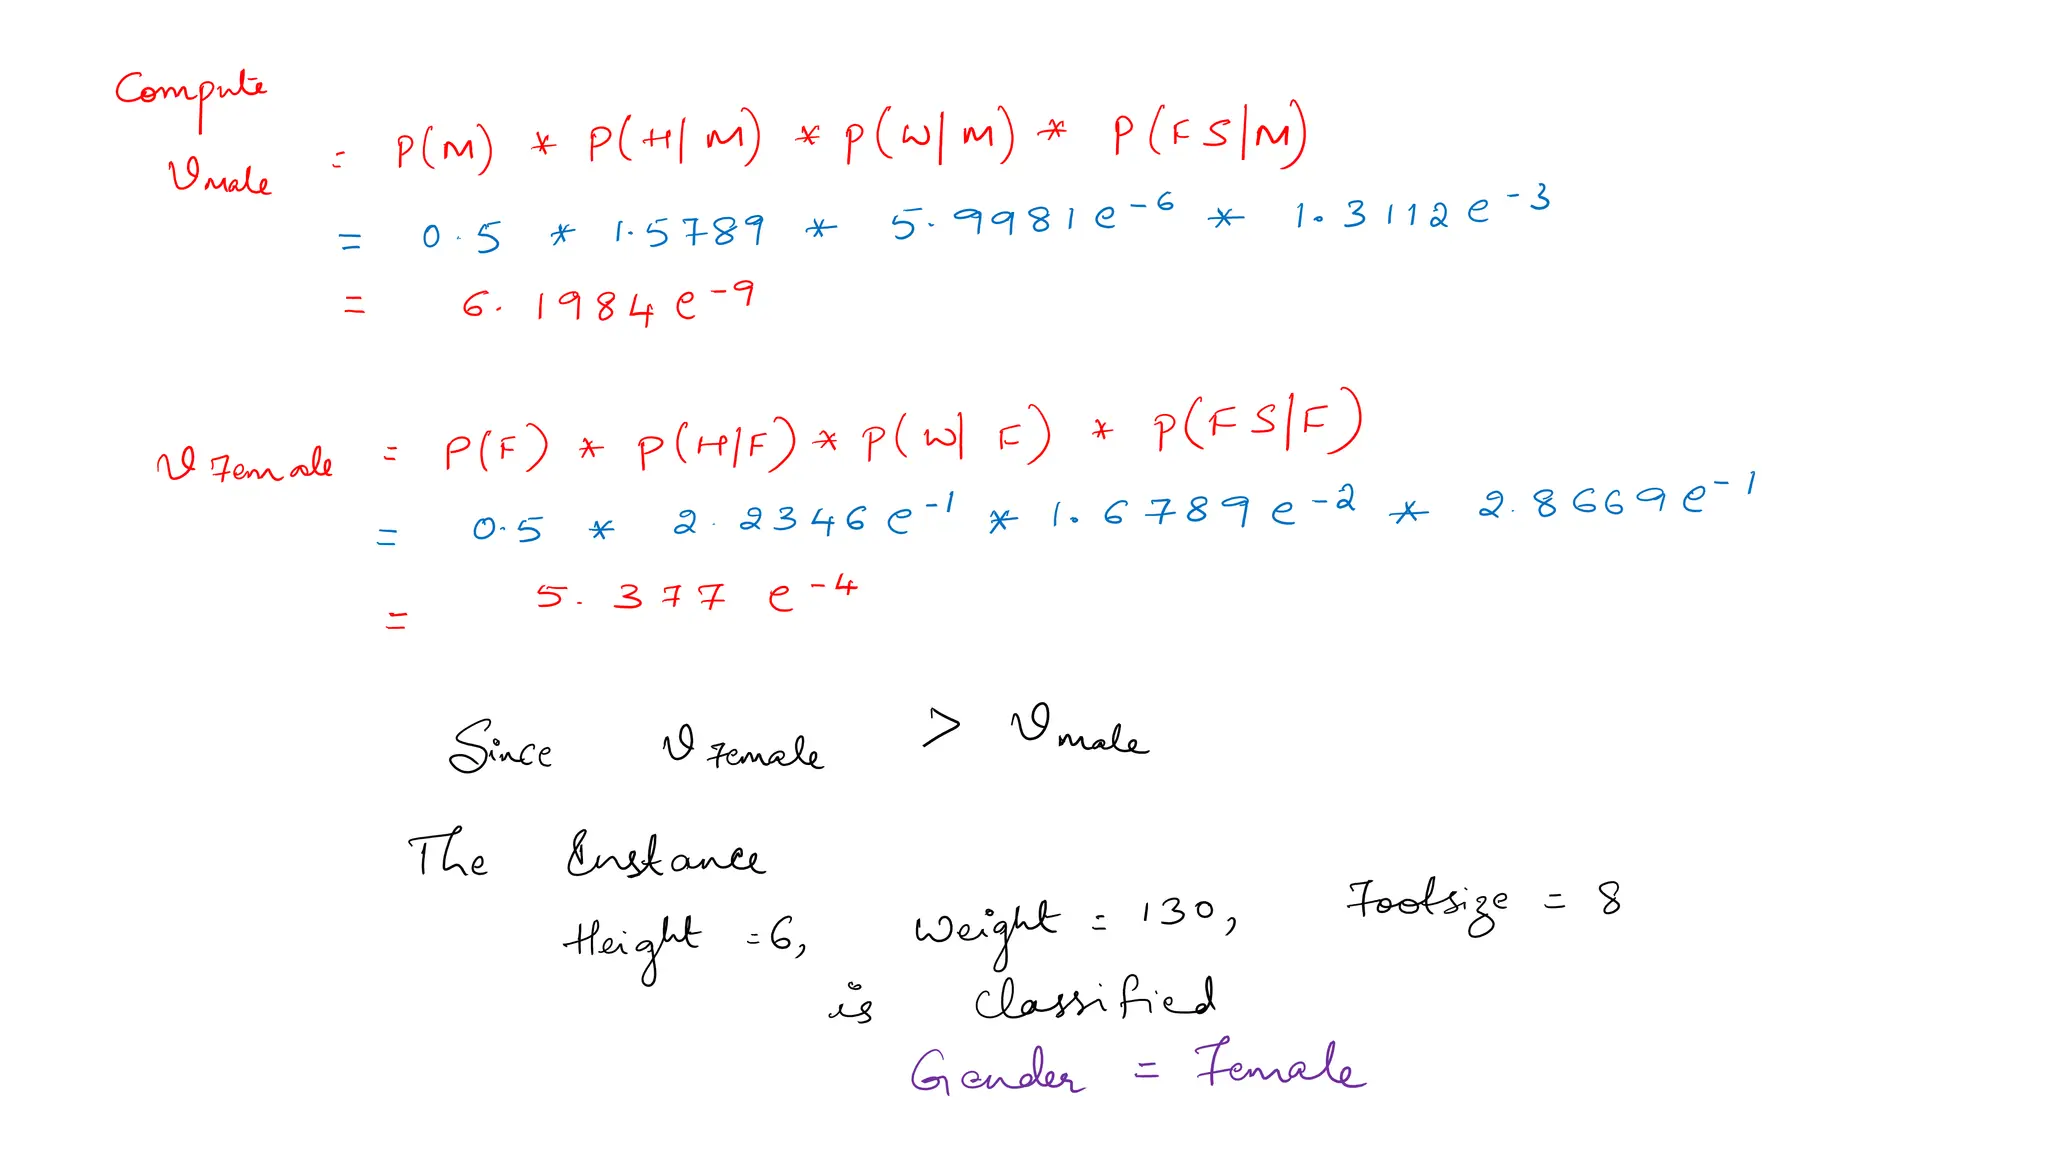 Compute
υ male = P(M) * P(H|M) * P(W|M) * P(FS|M)
= 0.5 * 1.5789 * 5.9981e-6 * 1.3112e-3
= 6.1984e-9
υ Female = P(F) * P(H|F) * P(W|F) * P(FS|F)
= 0.5 * 2.2346e-1 * 1.6789e-2 * 2.8669e-1
= 5.377e-4
Since υ Female > υ male
The Instance
Height = 6, Weight = 130, Footsize = 8
is classified
Gender = Female